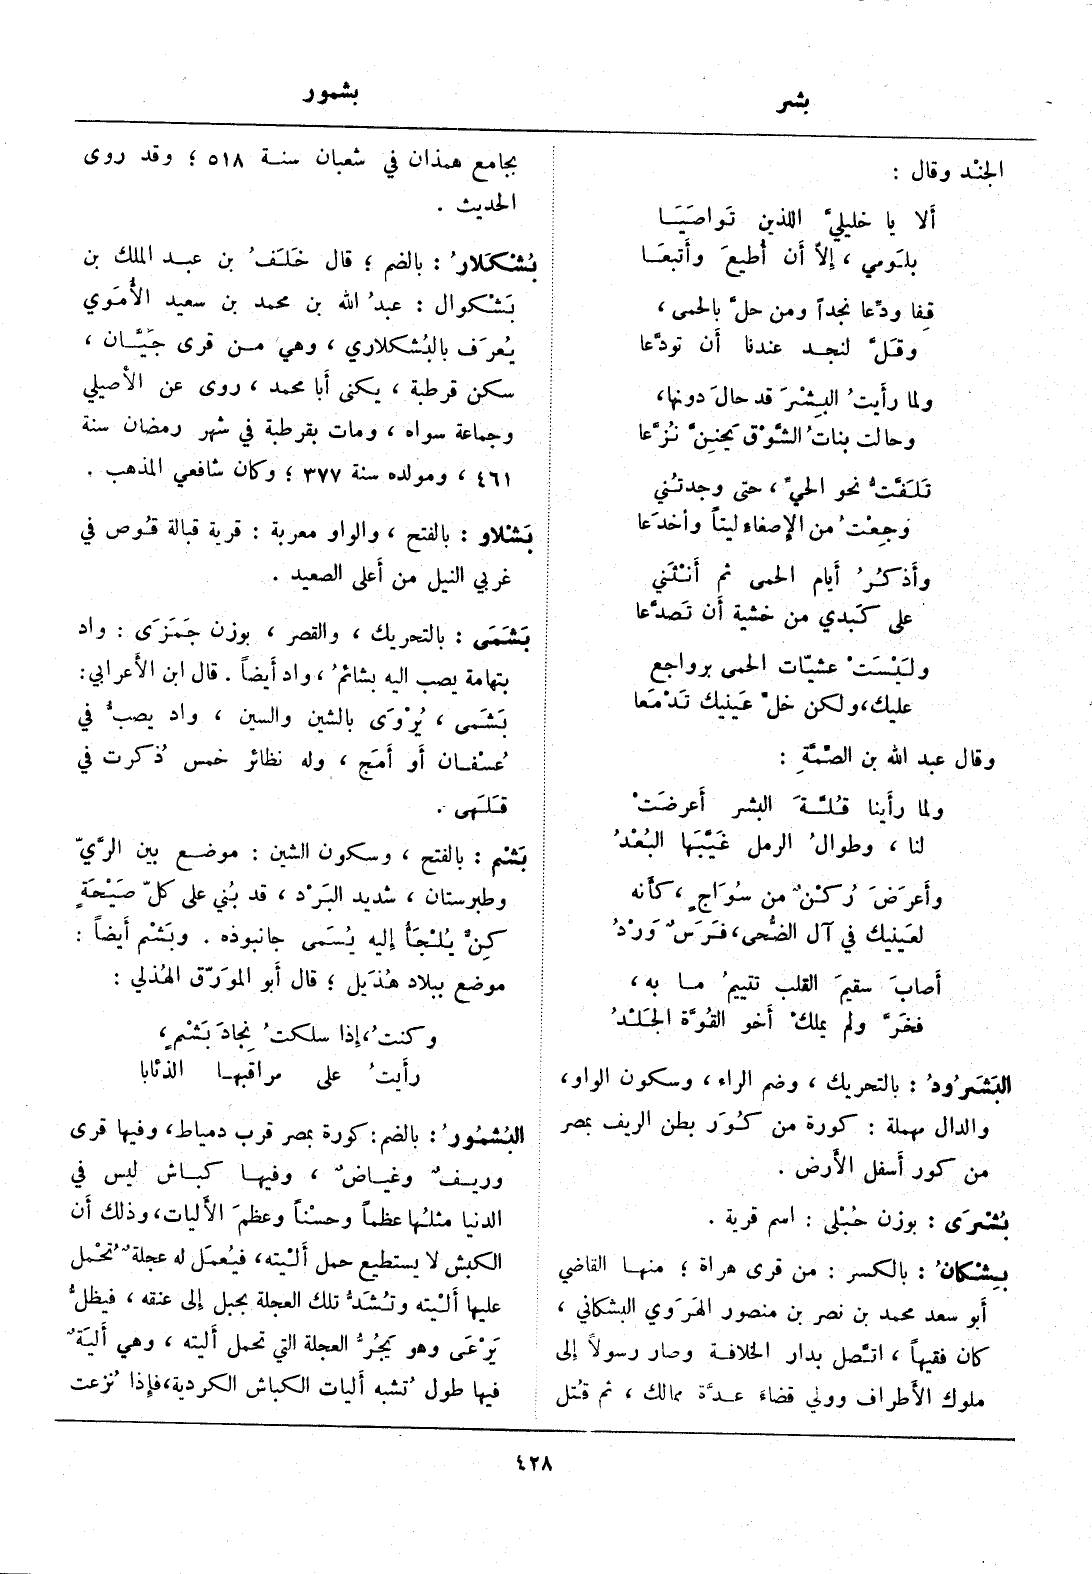 بشر
بشمور
الجنْد وقال :
ألا يا خليليَّ اللذين تَواصَيَا
بلَومي ، إلاّ أن أُطيعَ وأَتبعَا
قِفا ودِّعا نجداً ومن حلَّ بالحمى ،
وقَلَّ لنجد عندنا أن تودَّعا
ولما رأَيتُ البِشْرَ قد حالَ دونها ،
وحالت بناتُ الشَّوْق يَحْنِنَّ نُزَّعا
تَلَفَّتُّ نحو الحيِّ ، حتى وجدتُني
وَجِعْتُ من الإصغاء ليتاً وأخدَعا
وأَذكُرُ أيام الحمى ثم أَنْثَني
على كَبدي من خشية أن تَصدَّعا
ولَيْسَتْ عشيّات الحمى برواجع
عليك ، ولكن خلِّ عَينيك تَدْمَعا
وقال عبد الله بن الصِّمَّةِ :
ولما رأَينا قُلَّةَ البشر أَعرضَتْ
لنا ، وطوالُ الرمل غَيَّبَها البُعْدُ
وأَعرَضَ رُكْنٌ من سُوَاجٍ ، كأَنه
لعَينيك في آل الضُّحى ، فَرَسٌ وَرْدُ
أَصابَ سقيمَ القلب تتييمُ ما به ،
فخَرَّ ولم يملكْ أخو القُوَّة الجَلْدُ
البَشَرُودُ : بالتحريك ، وضم الراء ، وسكون الواو ،
والدال مهملة : كورة من كُوَر بطن الريف بمصر
من كور أسفل الأرض .
بُشْرَى : بوزن حُبْلى : اسم قرية .
بِشْكانُ : بالكسر : من قرى هراة ؛ منها القاضي
أبو سعد محمد بن نصر بن منصور الهَرَوي البشكاني ،
كان فقيهاً ، اتَّصل بدار الخلافة وصار رسولاً إلى
ملوك الأطراف وولي قضاء عدَّة ممالك ، ثم قُتل
بجامع همذان في شعبان سنة ٥١٨ ؛ وقد روى
الحديث .
بُشْكَلارُ : بالضم ؛ قال خَلَفُ بن عبد الملك بن
بَشْكوال : عبدُ الله بن محمد بن سعيد الأُمَوي
يُعرَف بالبُشكلاري ، وهي من قرى جَيَّان ،
سكن قرطبة ، يكنى أبا محمد ، روى عن الأصيلي
وجماعة سواه ، ومات بقرطبة في شهر رمضان سنة
٤٦١ ، ومولده سنة ٣٧٧ ؛ وكان شافعي المذهب .
بَشْلاو : بالفتح ، والواو معربة : قرية قبالة قُوص في
غربي النيل من أعلى الصعيد .
بَشَمَى : بالتحريك ، والقصر ، بوزن جَمَزَى : واد
بتهامة يصب اليه بشائمُ ، واد أيضاً . قال ابن الأعرابي :
بَشَمى ، يُرْوَى بالشين والسين ، واد يصبُّ في
عُسْفان أو أَمَج ، وله نظائر خمس ذُكرت في
قَلَهى .
بَشْم : بالفتح ، وسكون الشين : موضع بين الرَّيّ
وطبرستان ، شديد البَرْد ، قد بُني على كلّ صَيْحَةٍ
كِنٌّ يُلْجَأُ إليه يُسَمى جانبوذه . وبَشْم أيضاً :
موضع ببلاد هُذَيل ؛ قال أبو المورّق الهُذلي :
وكنتُ ، إذا سلكتُ نِجادَ بَشْمٍ ،
رأَيتُ على مراقبها الذئابا
البُشْمُورُ : بالضم : كورة بمصر قرب دمياط ، وفيها قرى
وريفٌ وغياضٌ ، وفيها كباش ليس في
الدنيا مثلُها عظماً وحسْناً وعظمَ الأَليات ، وذلك أن
الكبش لا يستطيع حمل أَلْيته ، فيُعمَل له عجلة تُحْمل
عليها أَلْيته وتُشَدُّ تلك العجلة بحبل إلى عنقه ، فيظلُّ
يَرْعَى وهو يَجُرُّ العجلة التي تحمل أليته ، وهي أَليَةٌ
فيها طول تُشبه أليات الكباش الكردية ، فإذا نُزعت
٤٢٨